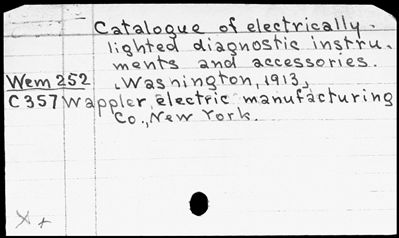 Catalogue of electrically
lighted diagnostic instru-
ments and accessories.
Wem 252
Washington, 1913,
C357 Wappler electric manufacturing
Co., New York.